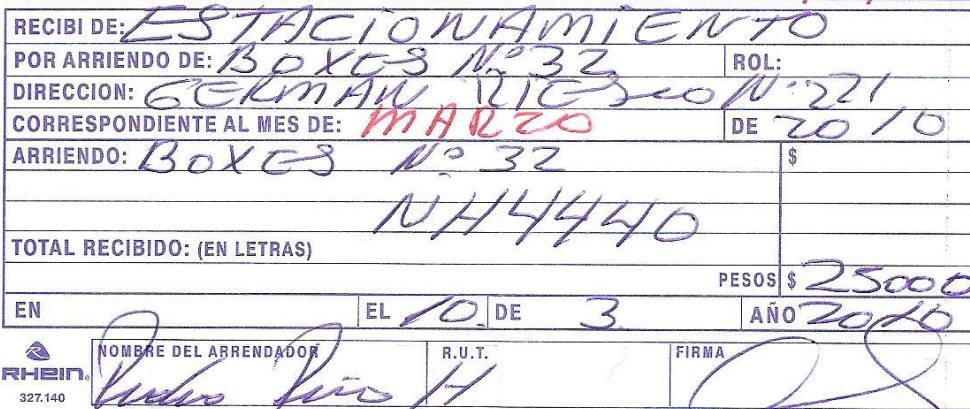 RECIBI DE: ESTACIONAMIENTO
POR ARRIENDO DE: BOXES Nº 32 ROL:
DIRECCION: GERMAN RIESCO Nº 221
CORRESPONDIENTE AL MES DE: MARZO DE 2010
ARRIENDO: BOXES Nº 32 $
NH4440
TOTAL RECIBIDO: (EN LETRAS)
PESOS $ 25000
EN EL 10. DE 3 AÑO 2010
NOMBRE DEL ARRENDADOR R.U.T. FIRMA
RHEIN.
327.140